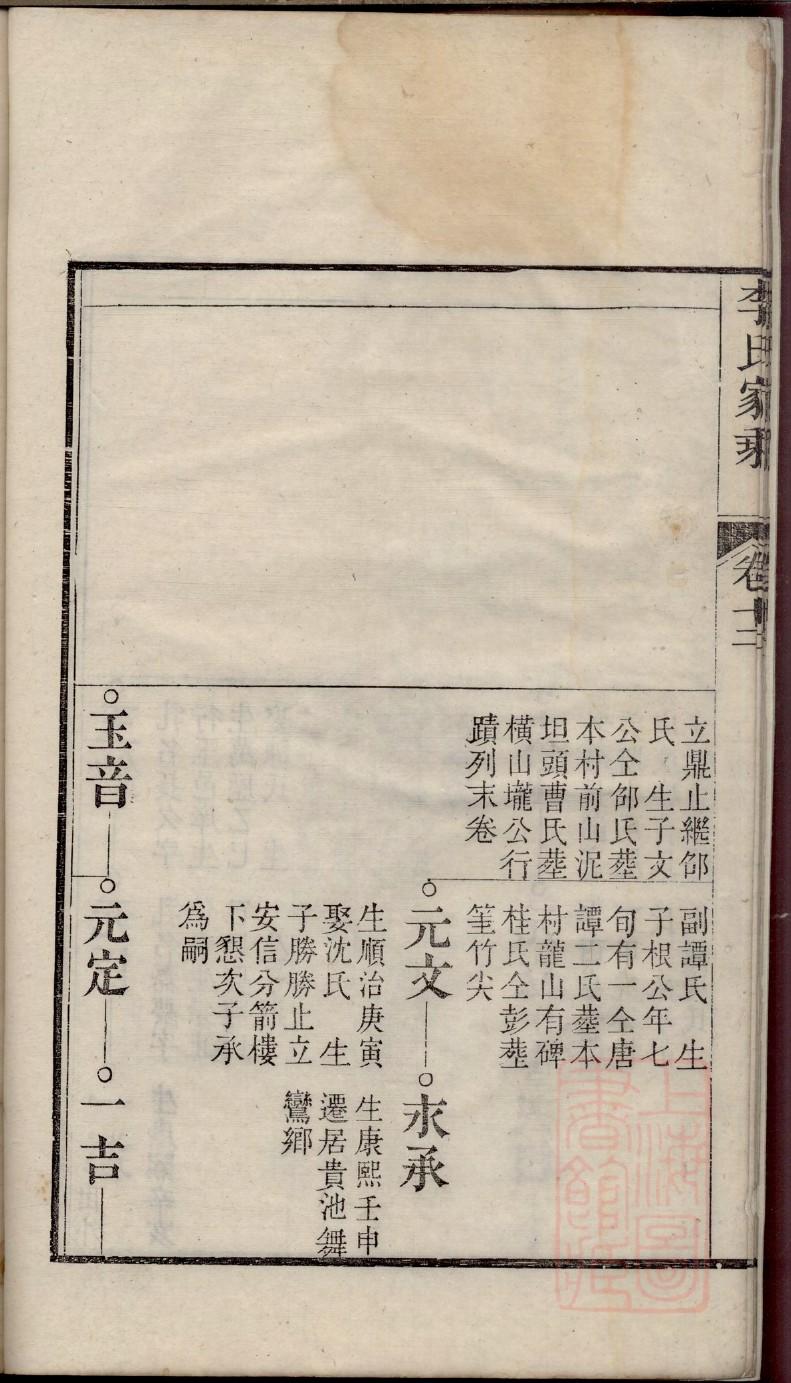 李氏家乘
卷十二
立鼎止繼郃
氏　生子文
公仝郃氏塟
本村前山泥
坦頭曹氏塟
橫山壠公行
蹟列末卷
副譚氏　生
子根公年七
旬有一仝唐
譚二氏塟本
村龍山有碑
桂氏仝彭塟
筀竹尖
元文
永承
生順治庚寅
娶沈氏　生
子勝勝止立
安信分箭樓
下懇次子承
爲嗣
生康熙壬申
遷居貴池舞
鸞鄉
玉音
元定
一吉
上海圖書館藏